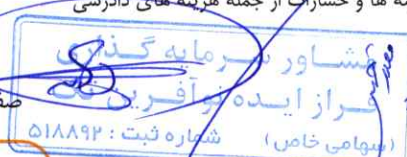 ه ها و خسارات از جمله هزینه های دادرسی
مشاور سرمایه گذاری
فراز ایده نوآفرین تک
صف
(سهامی خاص) شماره ثبت : ۵۱۸۸۹۲